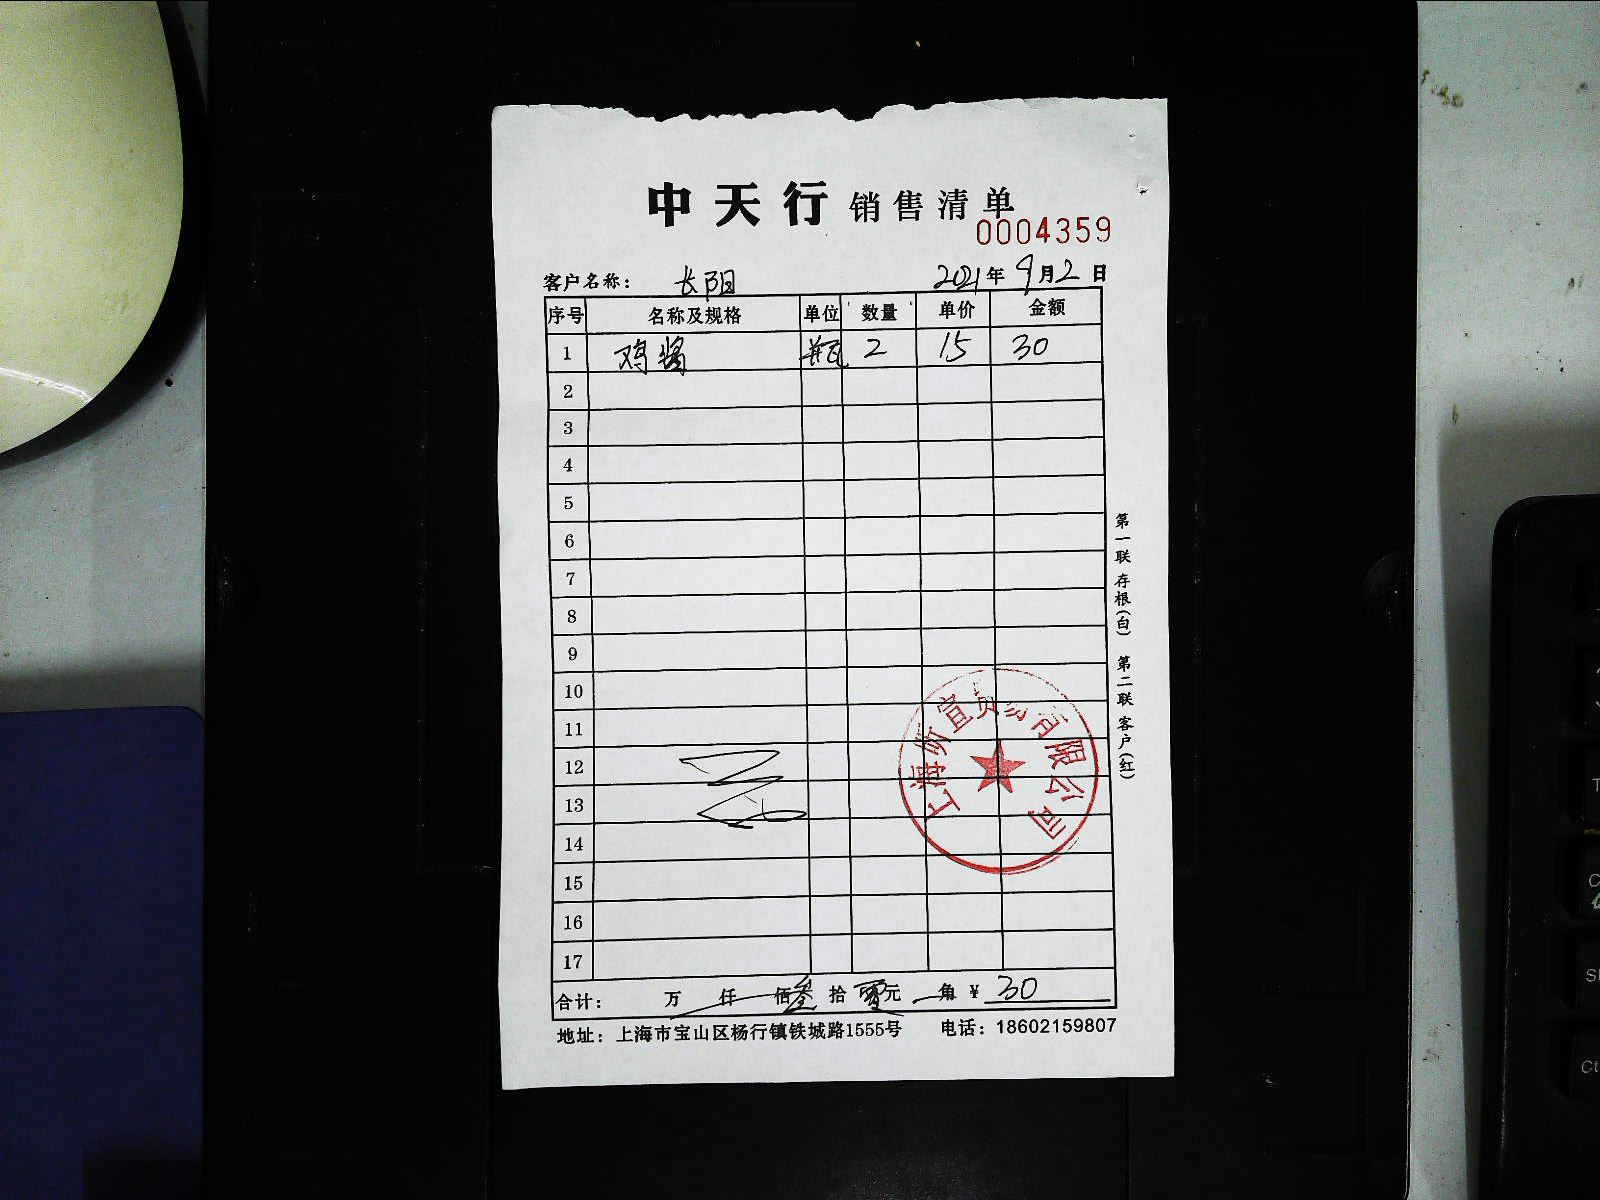 中天行 销售清单
0004359
客户名称： 长阳 2021年9月2日
序号 名称及规格 单位 数量 单价 金额
1 鸡酱 瓶 2 15 30
2
3
4
5
6
7
8
9
10
11
12
13
14
15
16
17
上海昕宣贸易有限公司
合计： 万 仟 佰 叁拾 零元 角 ¥ 30
地址：上海市宝山区杨行镇铁城路1555号 电话：18602159807
第一联 存根(白) 第二联 客户(红)